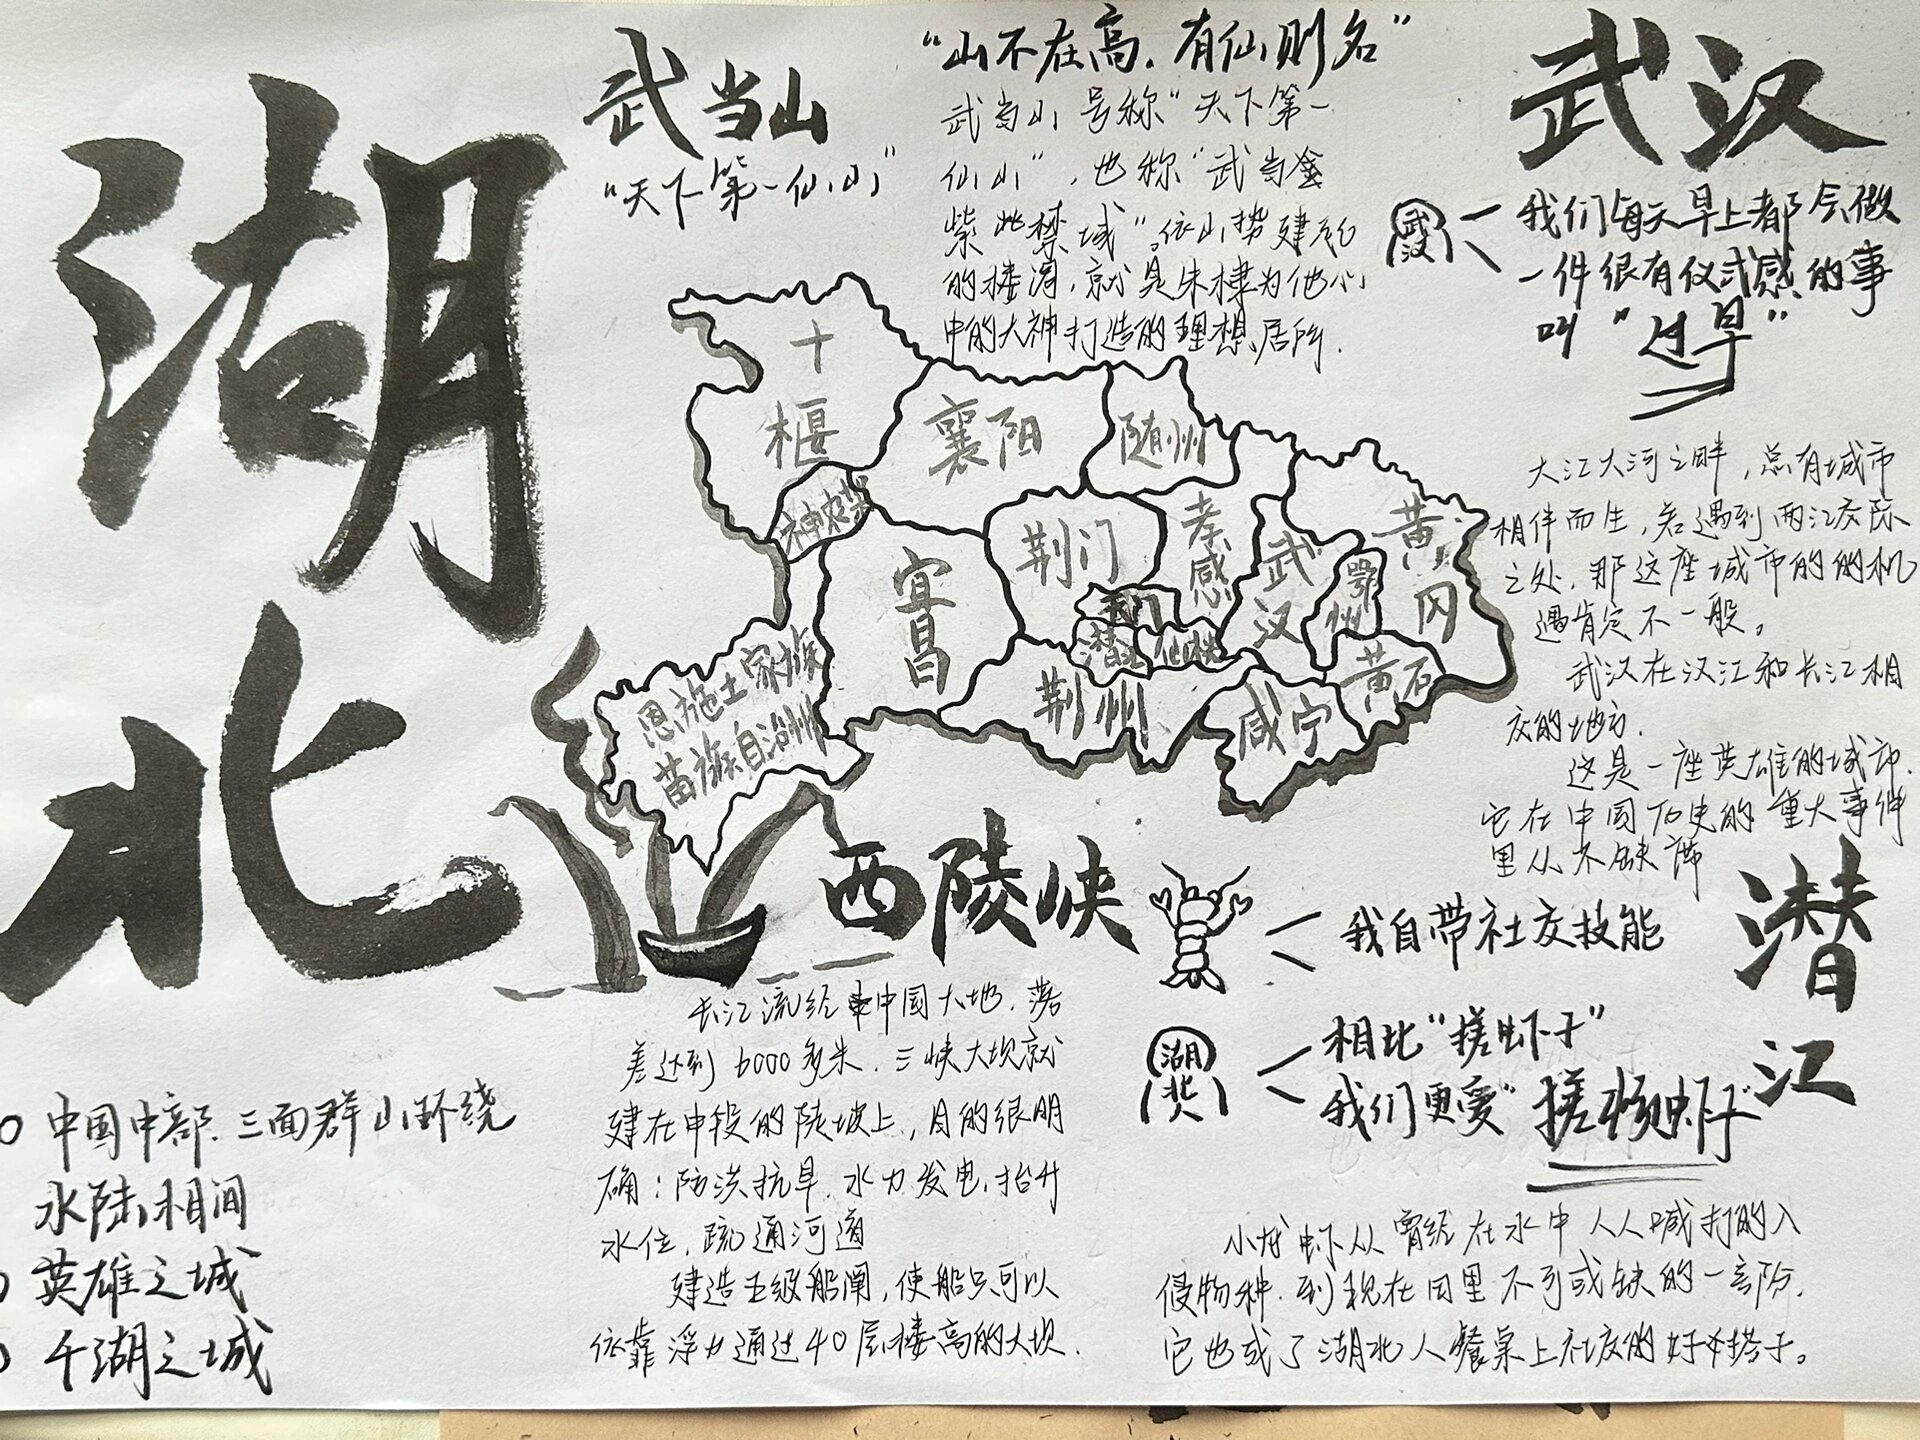 湖北
中国中部.三面群山环绕
水陆相间
英雄之城
千湖之城
武当山
“天下第一仙山”
“山不在高.有仙则名”
武当山号称“天下第一
仙山”,也称“武当金
紫此禁城”。依山势建
的楼阁,就是朱棣为他心
中的大神打造的理想居所.
十堰
襄阳
随州
神农架
荆门
孝感
武汉
黄冈
鄂州
宜昌
天门
潜江
仙桃
黄石
荆州
咸宁
恩施土家族
苗族自治州
武汉
武汉
我们每天早上都会做
一件很有仪式感的事
叫“过早”
大江大河之畔,总有城市
相伴而生,若遇到两江交际
之处,那这座城市的的机
遇肯定不一般。
武汉在汉江和长江相
交的地方.
这是一座英雄的城市.
它在中国历史的重大事件
里从不缺席
西陵峡
长江流经中国大地.落
差达到6000多米.三峡大坝就
建在中段的陡坡上,目的很明
确:防洪抗旱.水力发电.抬升
水位,疏通河道
建造五级船闸,使船只可以
依靠浮力通过40层楼高的大坝.
潜江
我自带社交技能
湖北
相比“搓虾子”
我们更爱“搓杨虾子”
小龙虾从曾经在水中人人喊打的入
侵物种.到现在田里不可或缺的一部分.
它也成了湖北人餐桌上社交的好搭子。